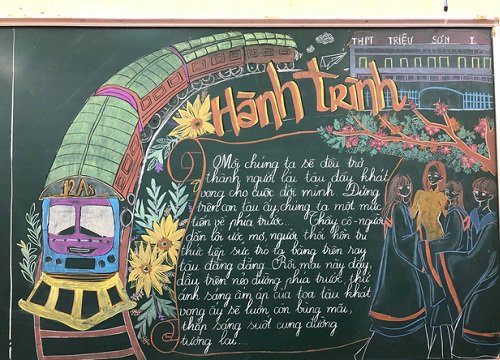 THPT TRIỆU SƠN I
Hành trình
12A5
Mỗi chúng ta sẽ đều trở
thành người lái tàu đầy khát
vọng cho cuộc đời mình. Đứng
trên con tàu ấy, chúng ta một mực
tiến về phía trước... Thầy cô - người
dẫn lối ước mơ, người thổi hồn tri
thức tiếp sức trò ta băng trên ray
tàu đằng đẵng. Rồi mai này đây,
đây trên nẻo đường phía trước, thứ
ánh sáng ấm áp của tọa tàu khát
vọng ấy sẽ luôn còn bùng mãi,
thắp sáng suốt cung đường
tương lai...